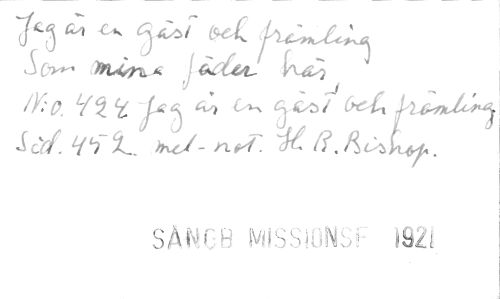 Jag är en gäst och främling
Som mina fäder här,
N:o. 424 Jag är en gäst och främling
Sid. 452. mel-not. H. R. Bishop.
SÅNGB MISSIONSF 1921